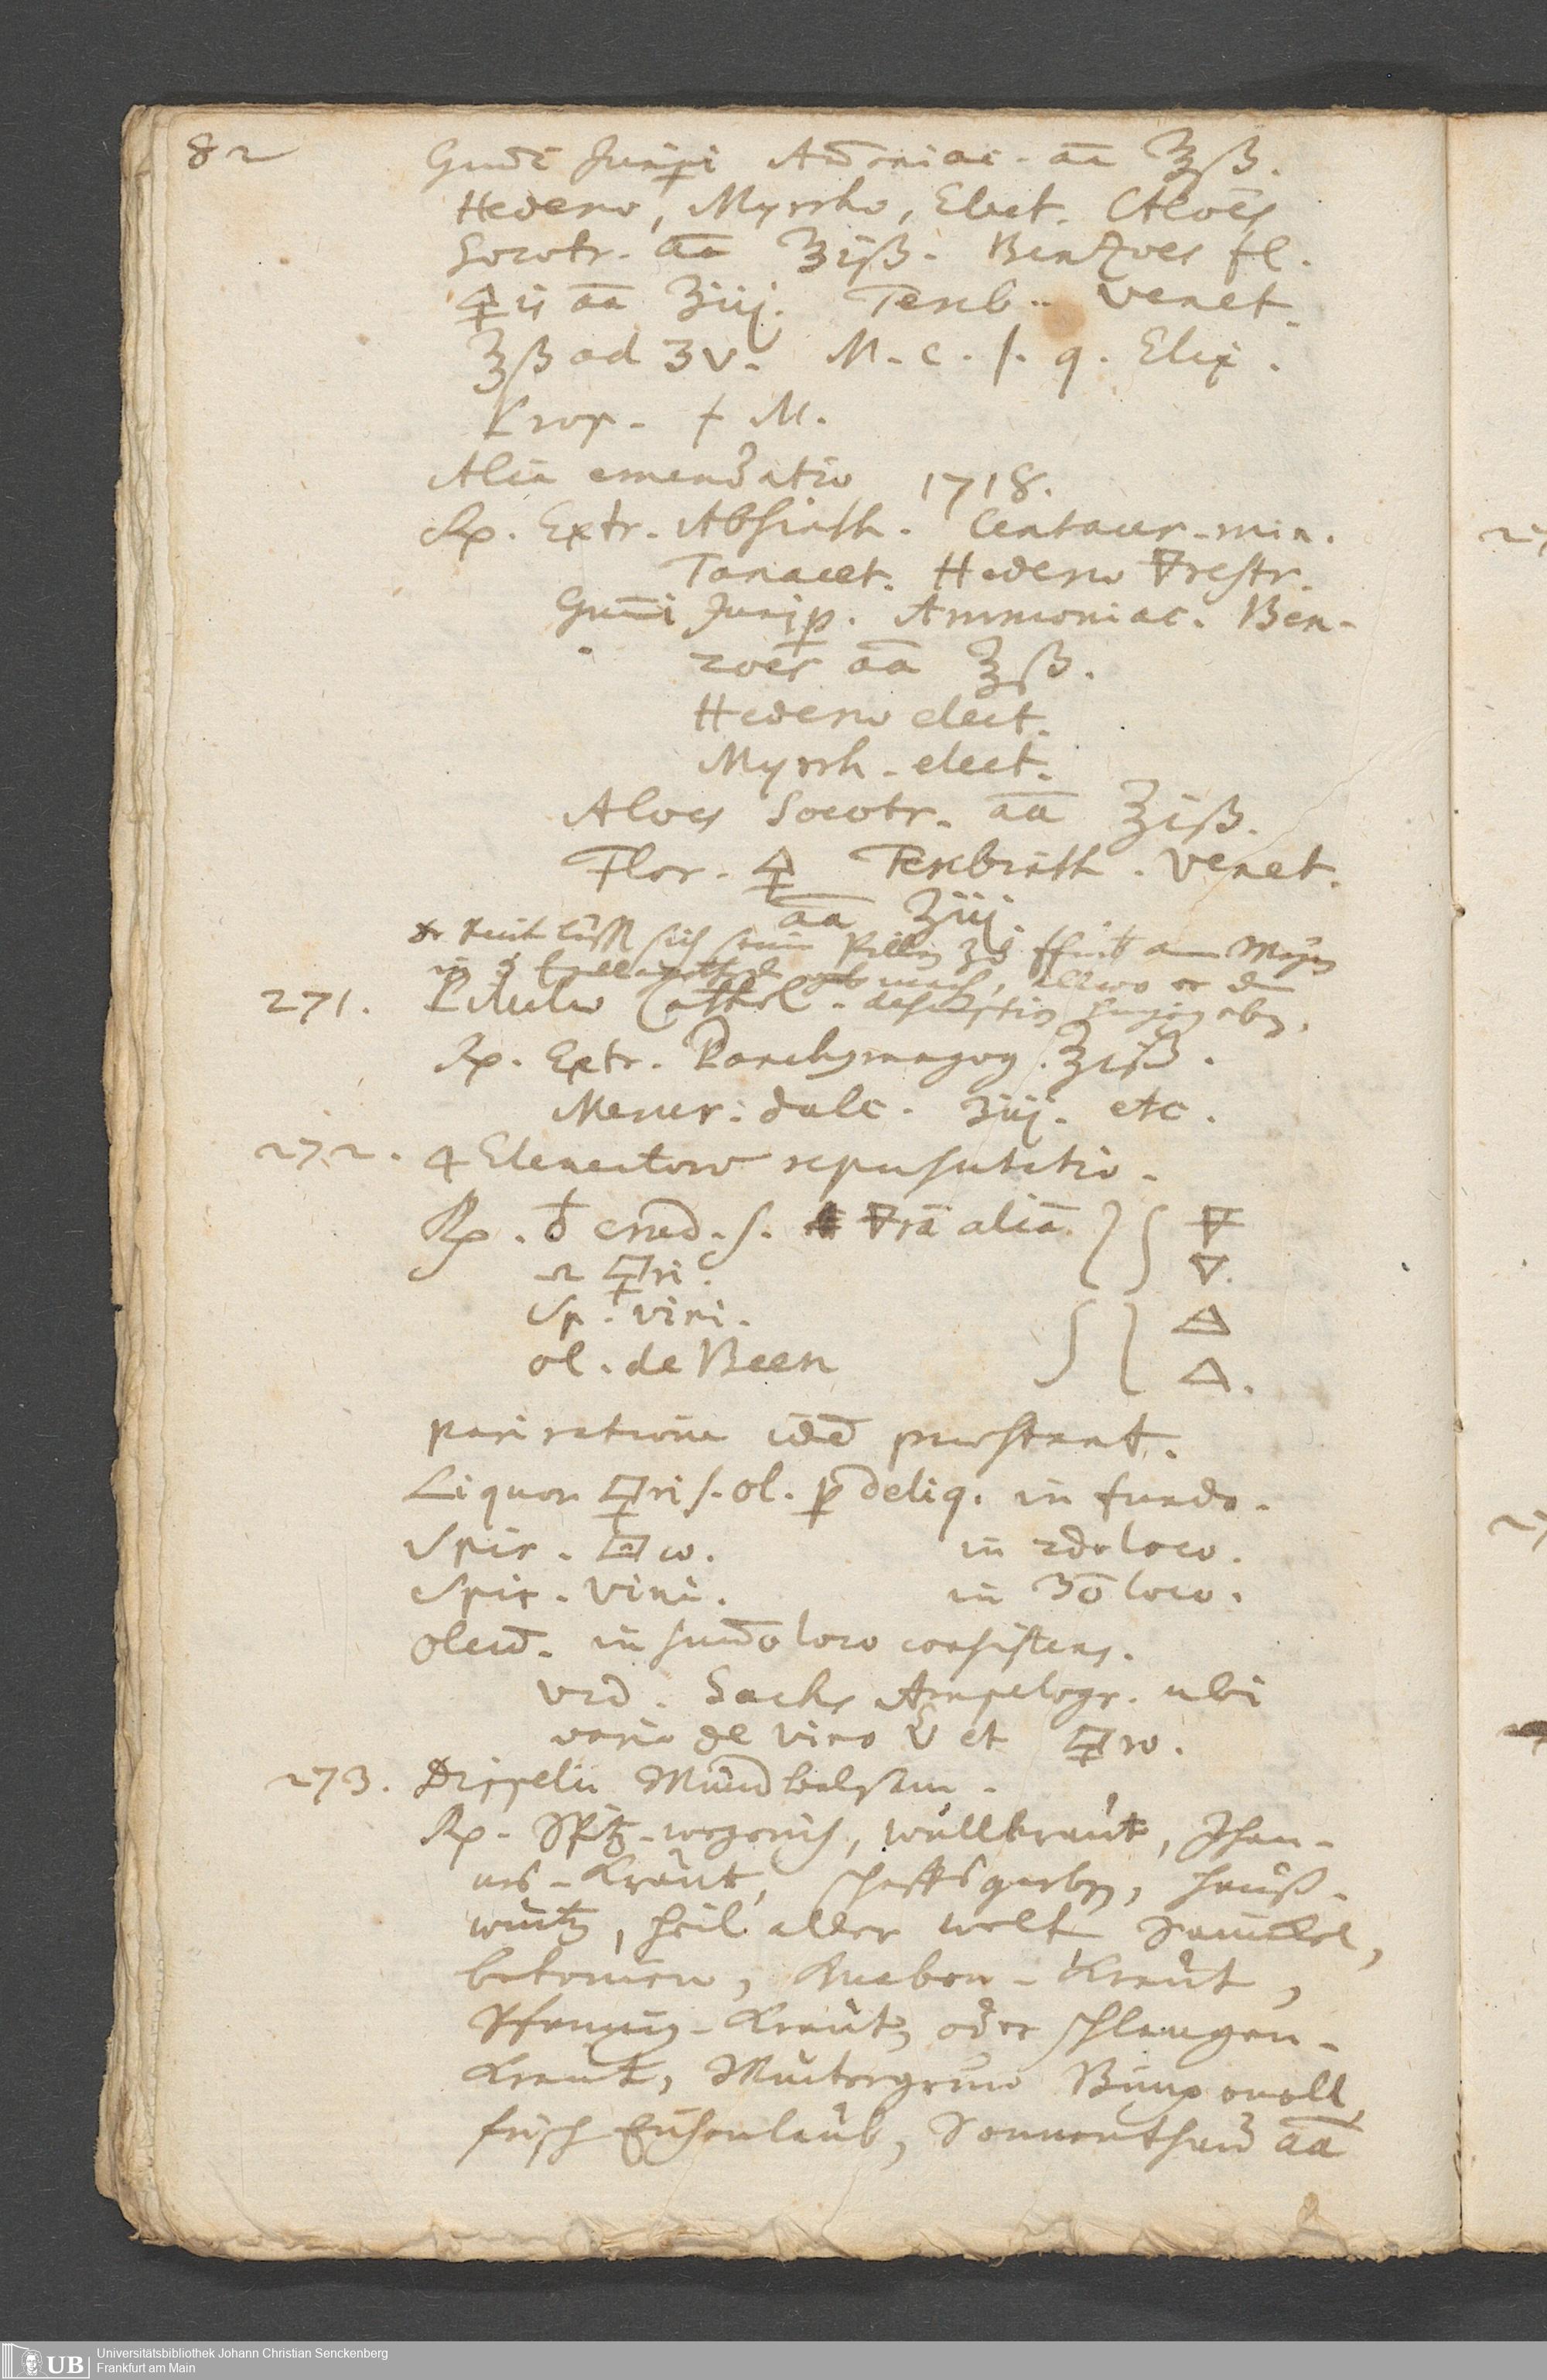 82
Gum̄i Junip̱i Am̄oniac. aa ℥ß.
Hederæ, Myrrhæ, Elect. Aloës
Socotr. aa ʒiß. Benzoes fl.
🜍is aa ʒiij. Tereb. Venet.
℥ß ad ʒv. M. c. s. q. Elix.
Prop. f M.
Alia emendatio 1718.
Rp. Extr. Absinth. Centaur. min.
Tanacet. Hederæ 🜃restr.
Gum̄i Junip. Ammoniac. Ben-
zoes aa ℥ß.
Hederæ elect.
Myrrh. elect.
Aloes Socotr. aa ʒiß.
Flor. 🜍 Terebinth. Venet.
aa ʒiij.
sich seine Pillen
271. Pilulæ Cathol.
Rp. Extr. Panchymagog. ʒiß.
Mercur: dulc. ʒiij. etc.
272. 4 Elementorū repræsentatio.
Rp. ♁ crud. s. 🜃rā aliā. 🜃
🜄.
Sp. vini. 🜁
ol. de Been 🜂.
pari ratione idē præstant.
Liquor 🜿ri s. ol. p deliq. in fundo.
Spir. in 2do loco.
Spir. Vini. in 3o loco.
Oleum. in sum̄o loco consistens.
vid. Sachs Ampelogr. ubi
varia de vino et 🜿ro.
273. Dippelii Wundbalsam.
Rp. Spitz-wegerich, wullkraut, Johan-
nis-Kraut, schaffsgarben, hauß-
wurtz, heil aller welt, Sanickel,
betonien, Knaben-Kraut,
Pfennig-Kraut, oder schlangen-
Kraut, Wintergrün
frisch Eichenlaub, Sonnenthau aa
Universitätsbibliothek Johann Christian Senckenberg
Frankfurt am Main
UB